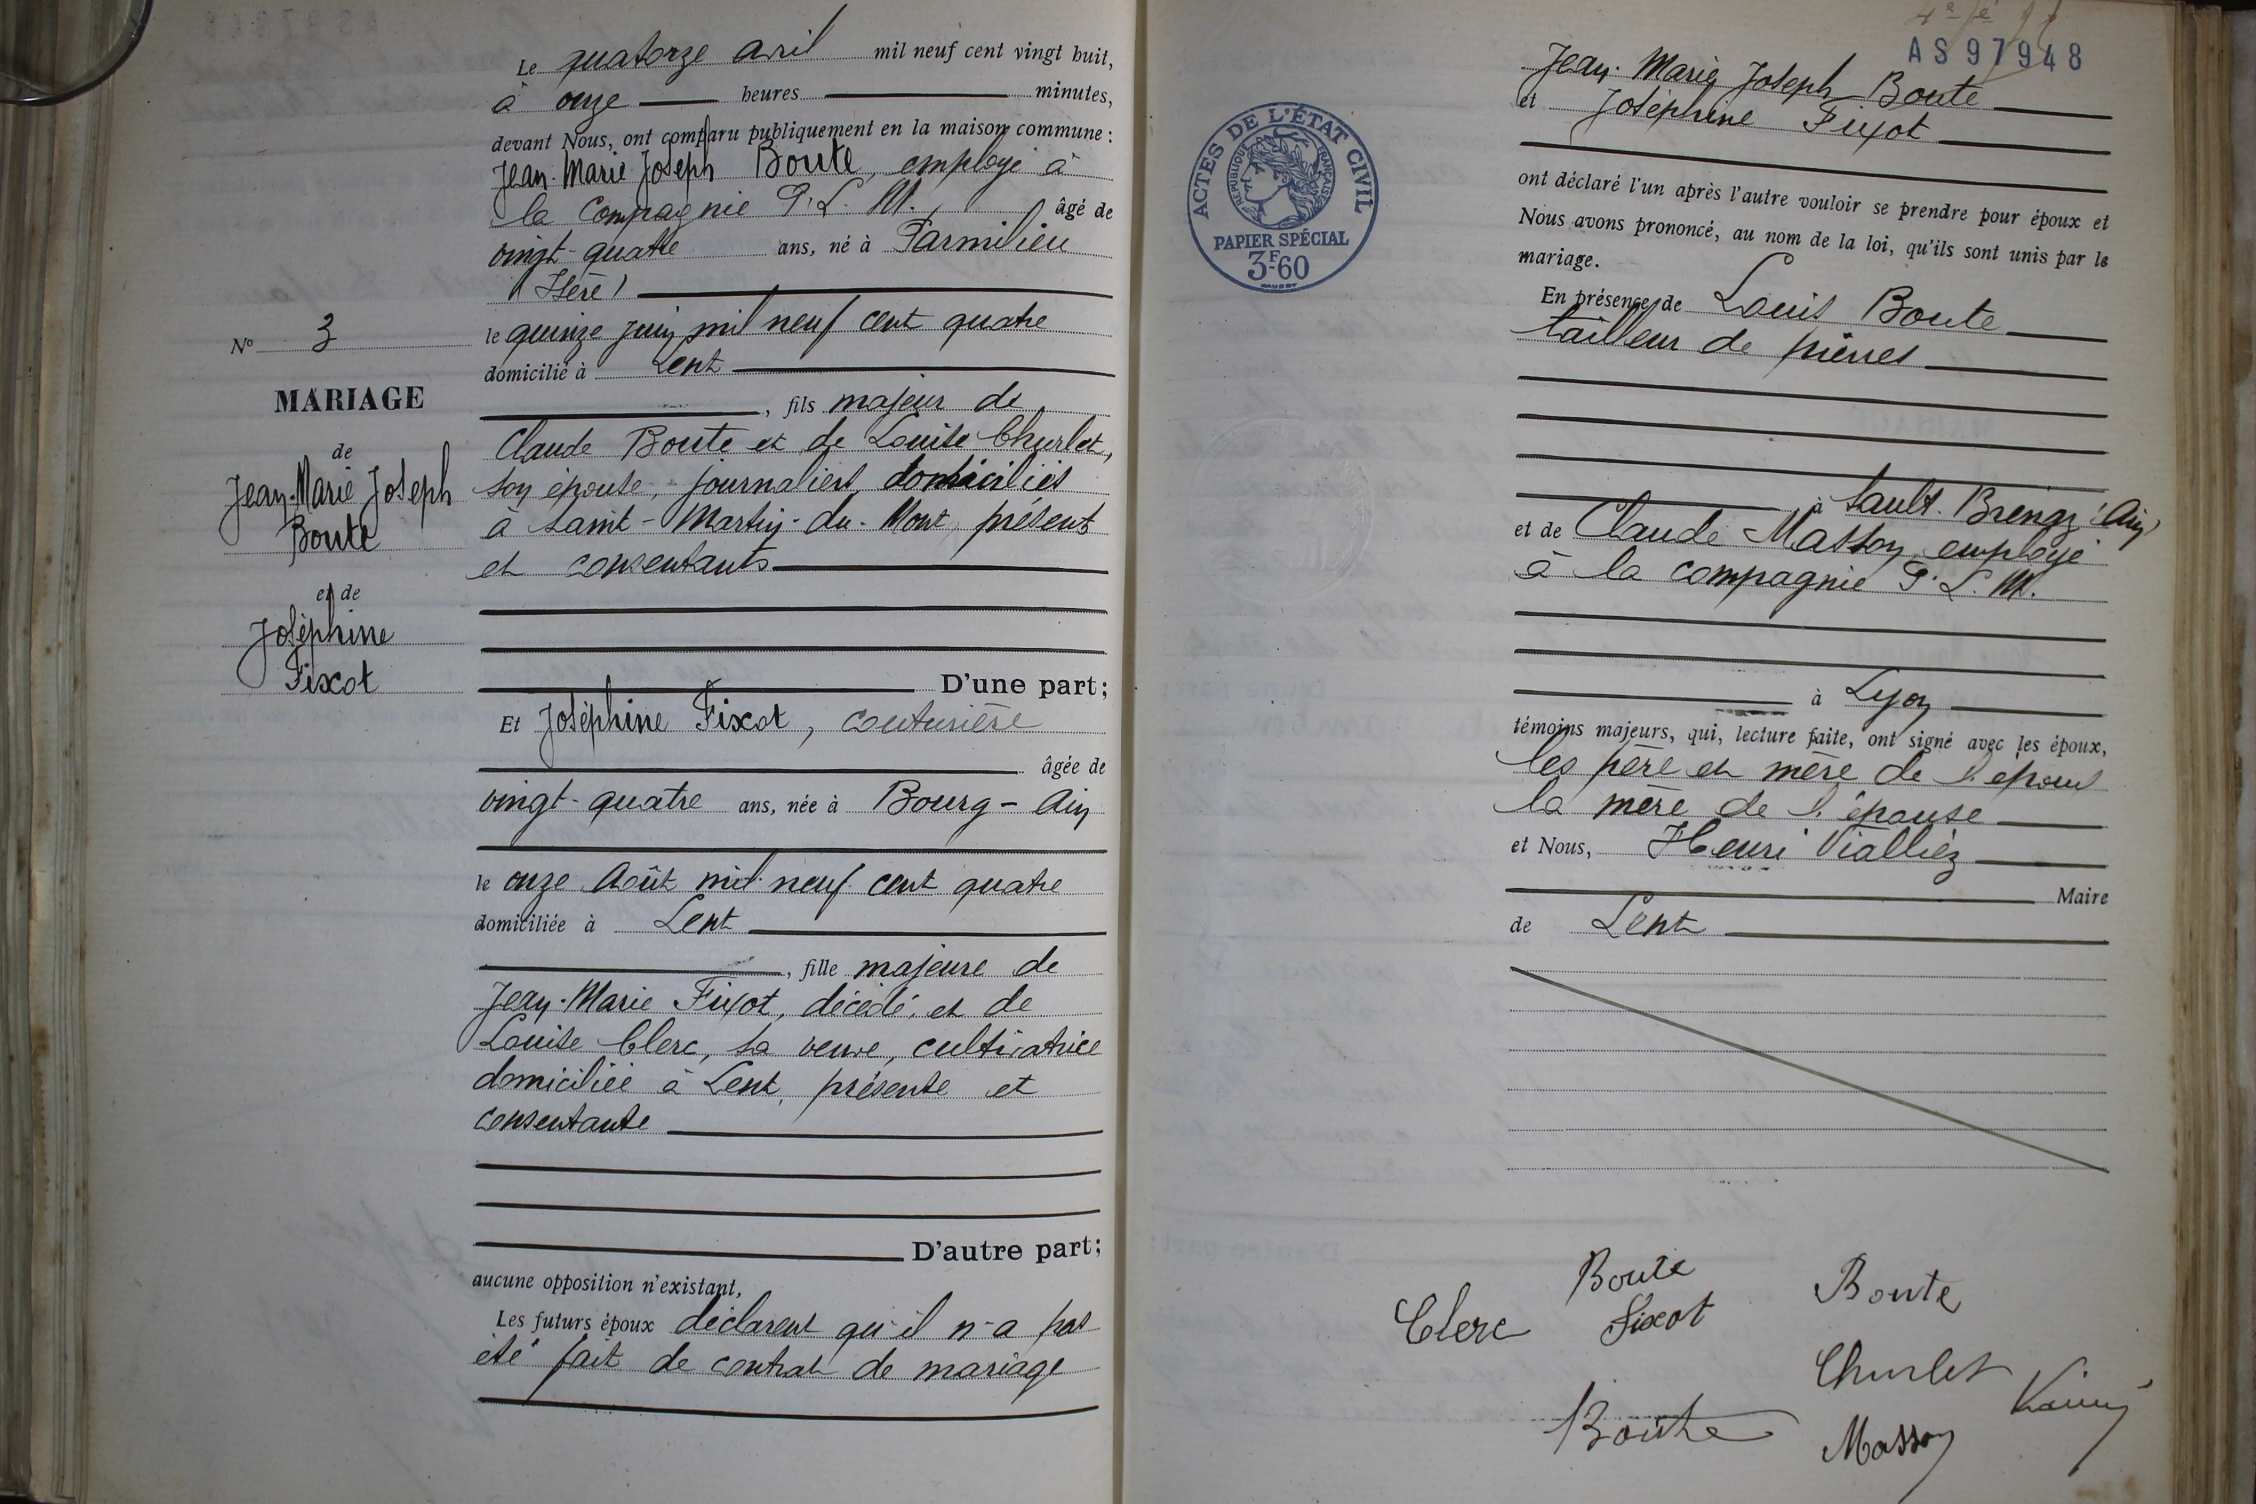 Le quatorze avril mil neuf cent vingt huit,
à onze heures minutes,
devant Nous, ont comparu publiquement en la maison commune :
Jean-Marie Joseph Boute, employé à
la Compagnie P. L. M. âgé de
vingt-quatre ans, né à Parmilieu
(Isère)
le quinze juin mil neuf cent quatre
domicilié à Lent
, fils majeur de
Claude Boute et de Louise Churlet,
son épouse, journaliers domiciliés
à Saint-Martin-du-Mont, présents
et consentants
D'une part;
Et Joséphine Fixot, couturière
âgée de
vingt-quatre ans, née à Bourg - Ain
le onze Août mil neuf cent quatre
domiciliée à Lent
, fille majeure de
Jean-Marie Fixot, décédé, et de
Louise Clerc, sa veuve, cultivatrice
domiciliée à Lent, présente et
consentante
D'autre part;
aucune opposition n'existant,
Les futurs époux déclarent qu'il n'a pas
été fait de contrat de mariage
N° 3
MARIAGE
de
Jean-Marie Joseph
Boute
et de
Joséphine
Fixot
AS97948
Jean-Marie Joseph Boute
et Joséphine Fixot
ont déclaré l'un après l'autre vouloir se prendre pour époux et
Nous avons prononcé, au nom de la loi, qu'ils sont unis par le
mariage.
En présence de Louis Boute
tailleur de pierres
à Sault-Brénaz (Ain)
et de Claude Masson, employé
à la compagnie P. L. M.
à Lyon
témoins majeurs, qui, lecture faite, ont signé avec les époux,
les père et mère de l'époux
la mère de l'épouse
et Nous, Henri Vialliez
Maire
de Lent
ACTES DE L'ÉTAT CIVIL
RÉPUBLIQUE FRANÇAISE
PAPIER SPÉCIAL
3F60
Boute
Clerc Fixot
Boute
Churlet
Boute
Masson